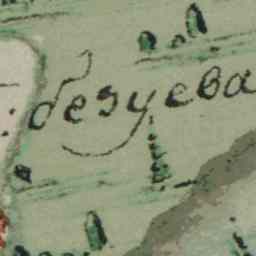 безуева